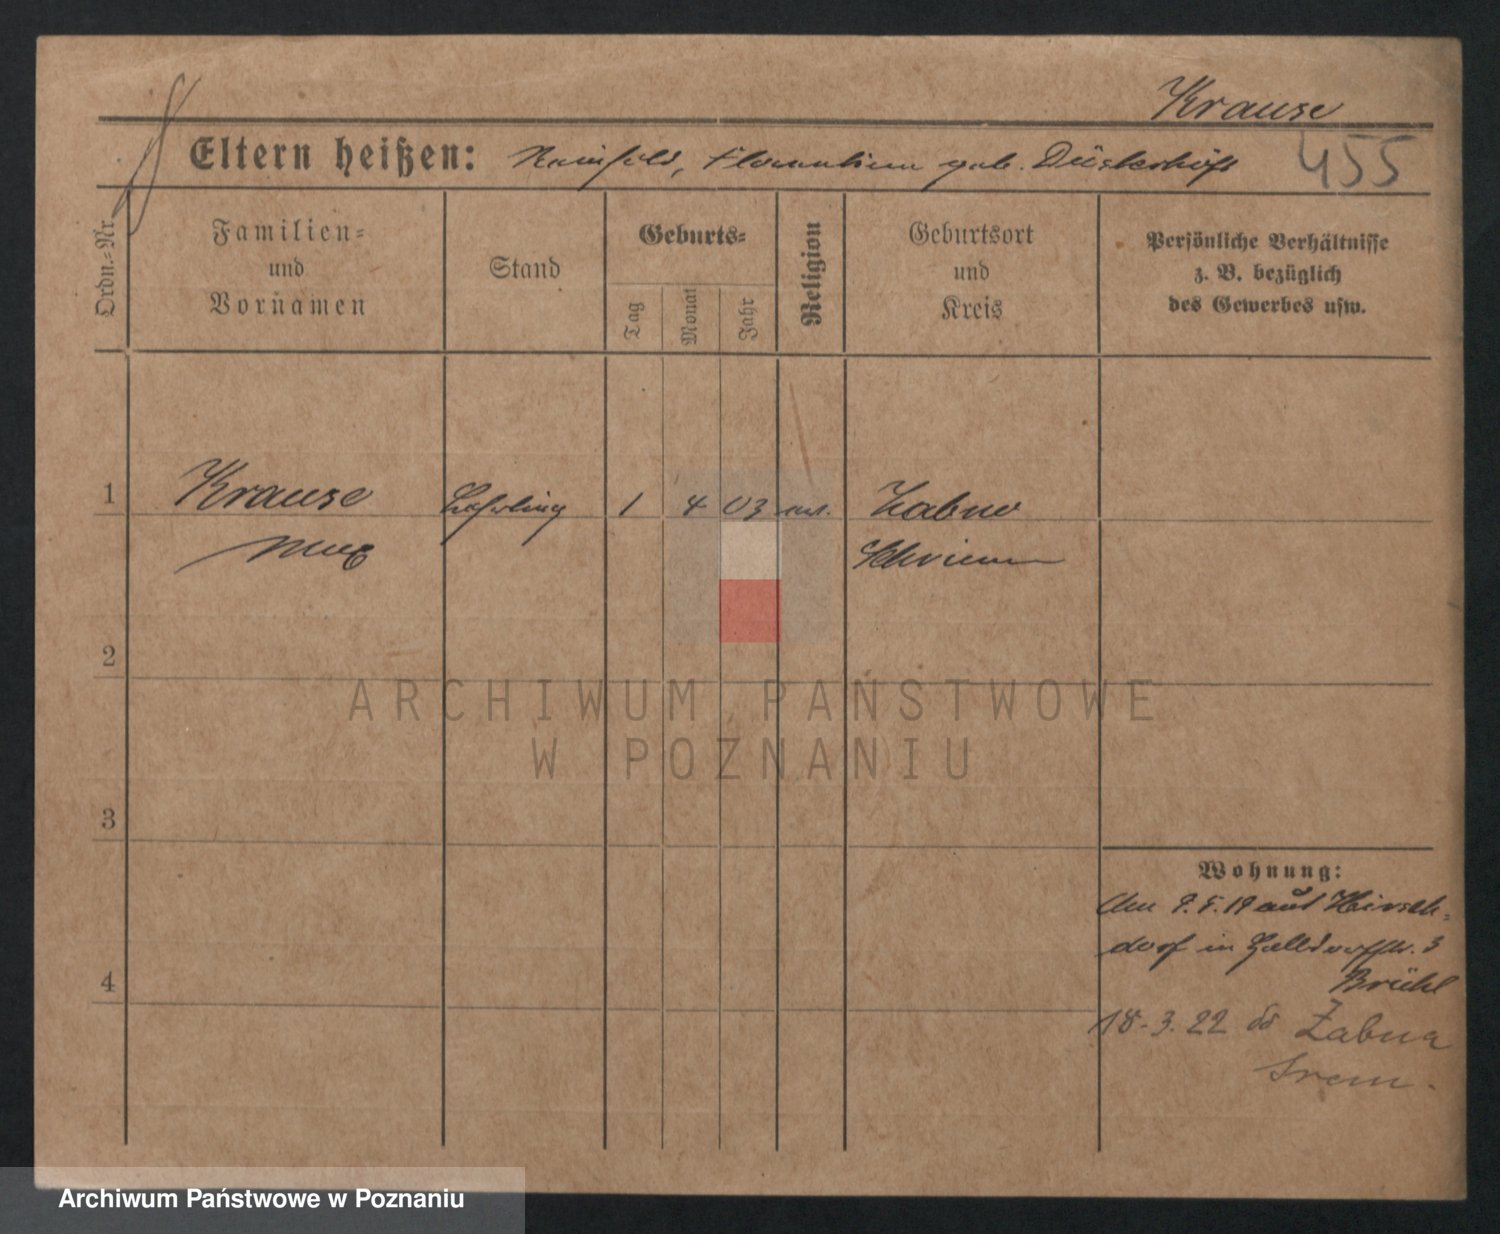 Krause
Eltern heißen: Reinhold, Florentine geb. Düsterhöft 455
Ordn.-Nr.
Familien- und Vornamen
Stand
Geburts-
Tag
Monat
Jahr
Religion
Geburtsort und Kreis
Persönliche Verhältnisse
z. B. bezüglich
des Gewerbes usw.
1 Krause Lehrling 1 4 03 ev. Zabno
Max Schrimm
2
ARCHIWUM PAŃSTWOWE
W POZNANIU
3
Wohnung:
Am 9.5.19 aus Hirsch-
dorf in 3
Brühl
4
18.3.22 do Żabna
Śrem.
Archiwum Państwowe w Poznaniu